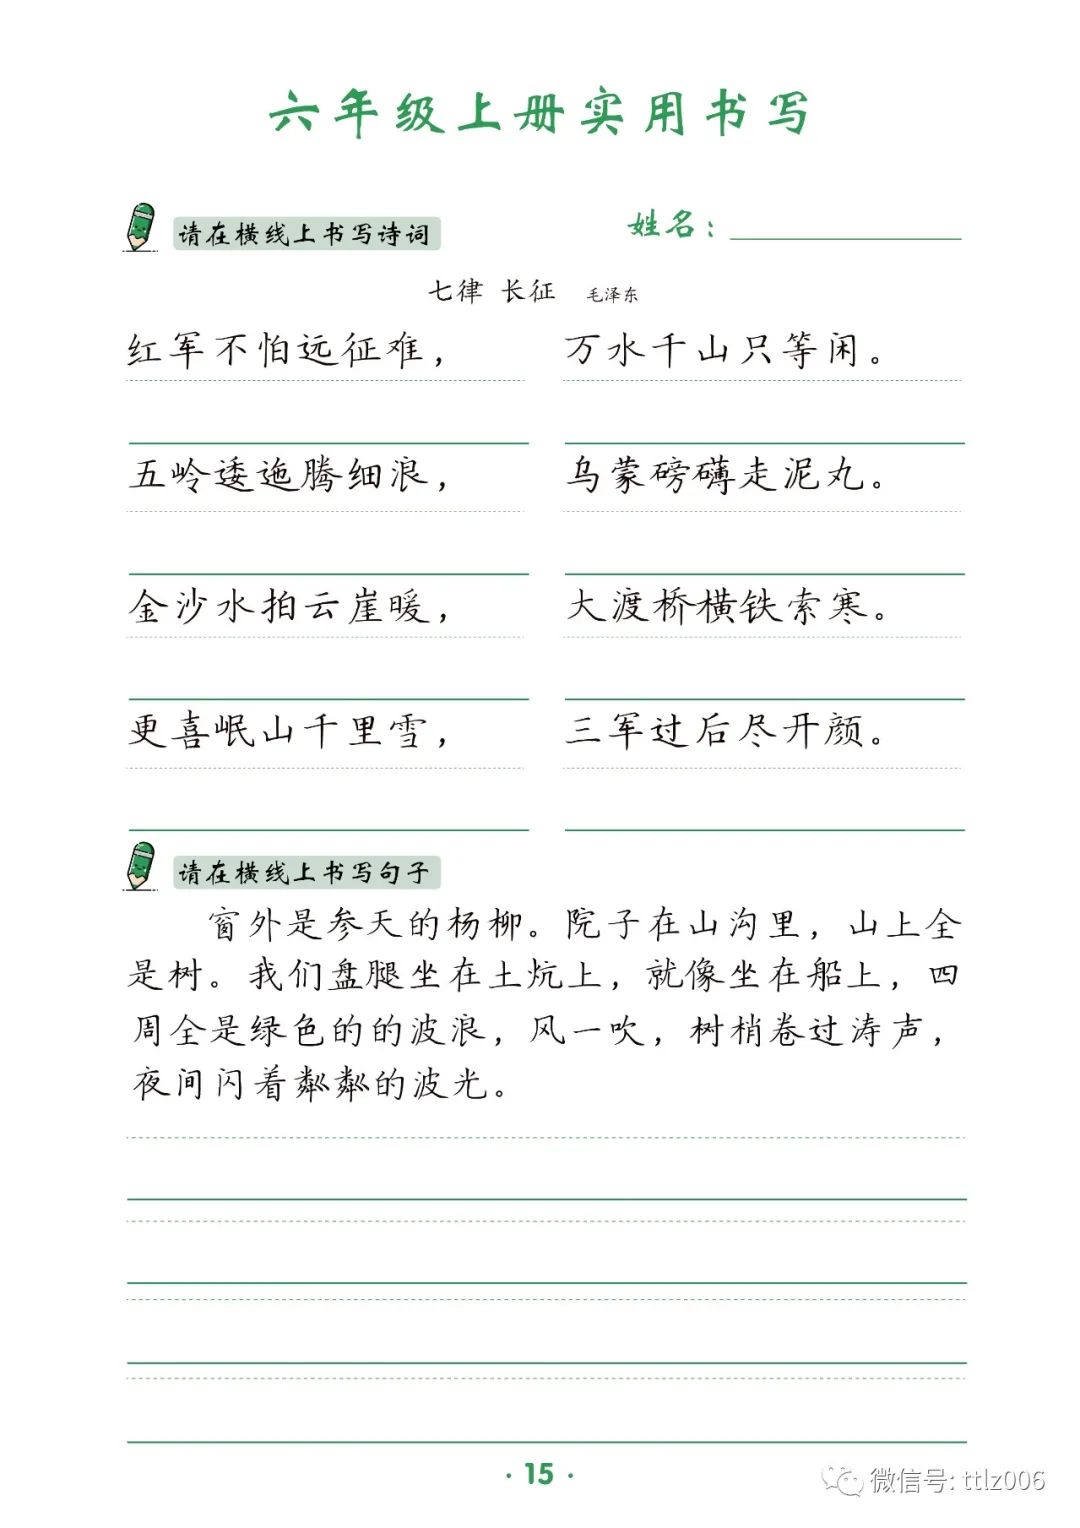 六年级上册实用书写
请在横线上书写诗词 姓名：
七律 长征 毛泽东
红军不怕远征难， 万水千山只等闲。
五岭逶迤腾细浪， 乌蒙磅礴走泥丸。
金沙水拍云崖暖， 大渡桥横铁索寒。
更喜岷山千里雪， 三军过后尽开颜。
请在横线上书写句子
窗外是参天的杨柳。院子在山沟里，山上全
是树。我们盘腿坐在土炕上，就像坐在船上，四
周全是绿色的的波浪，风一吹，树梢卷过涛声，
夜间闪着粼粼的波光。
·15·
微信号: ttlz006